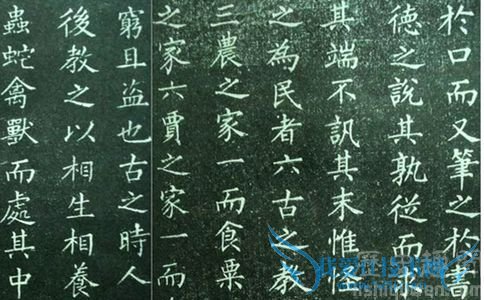 於口而又筆之於書
德之說其孰從而
其端不訊其末惟怪
之為民者六古之教
三農之家一而食粟
之家六賈之家一而
窮且盜也古之時人
後教之以相生相養
蟲蛇禽獸而處其中